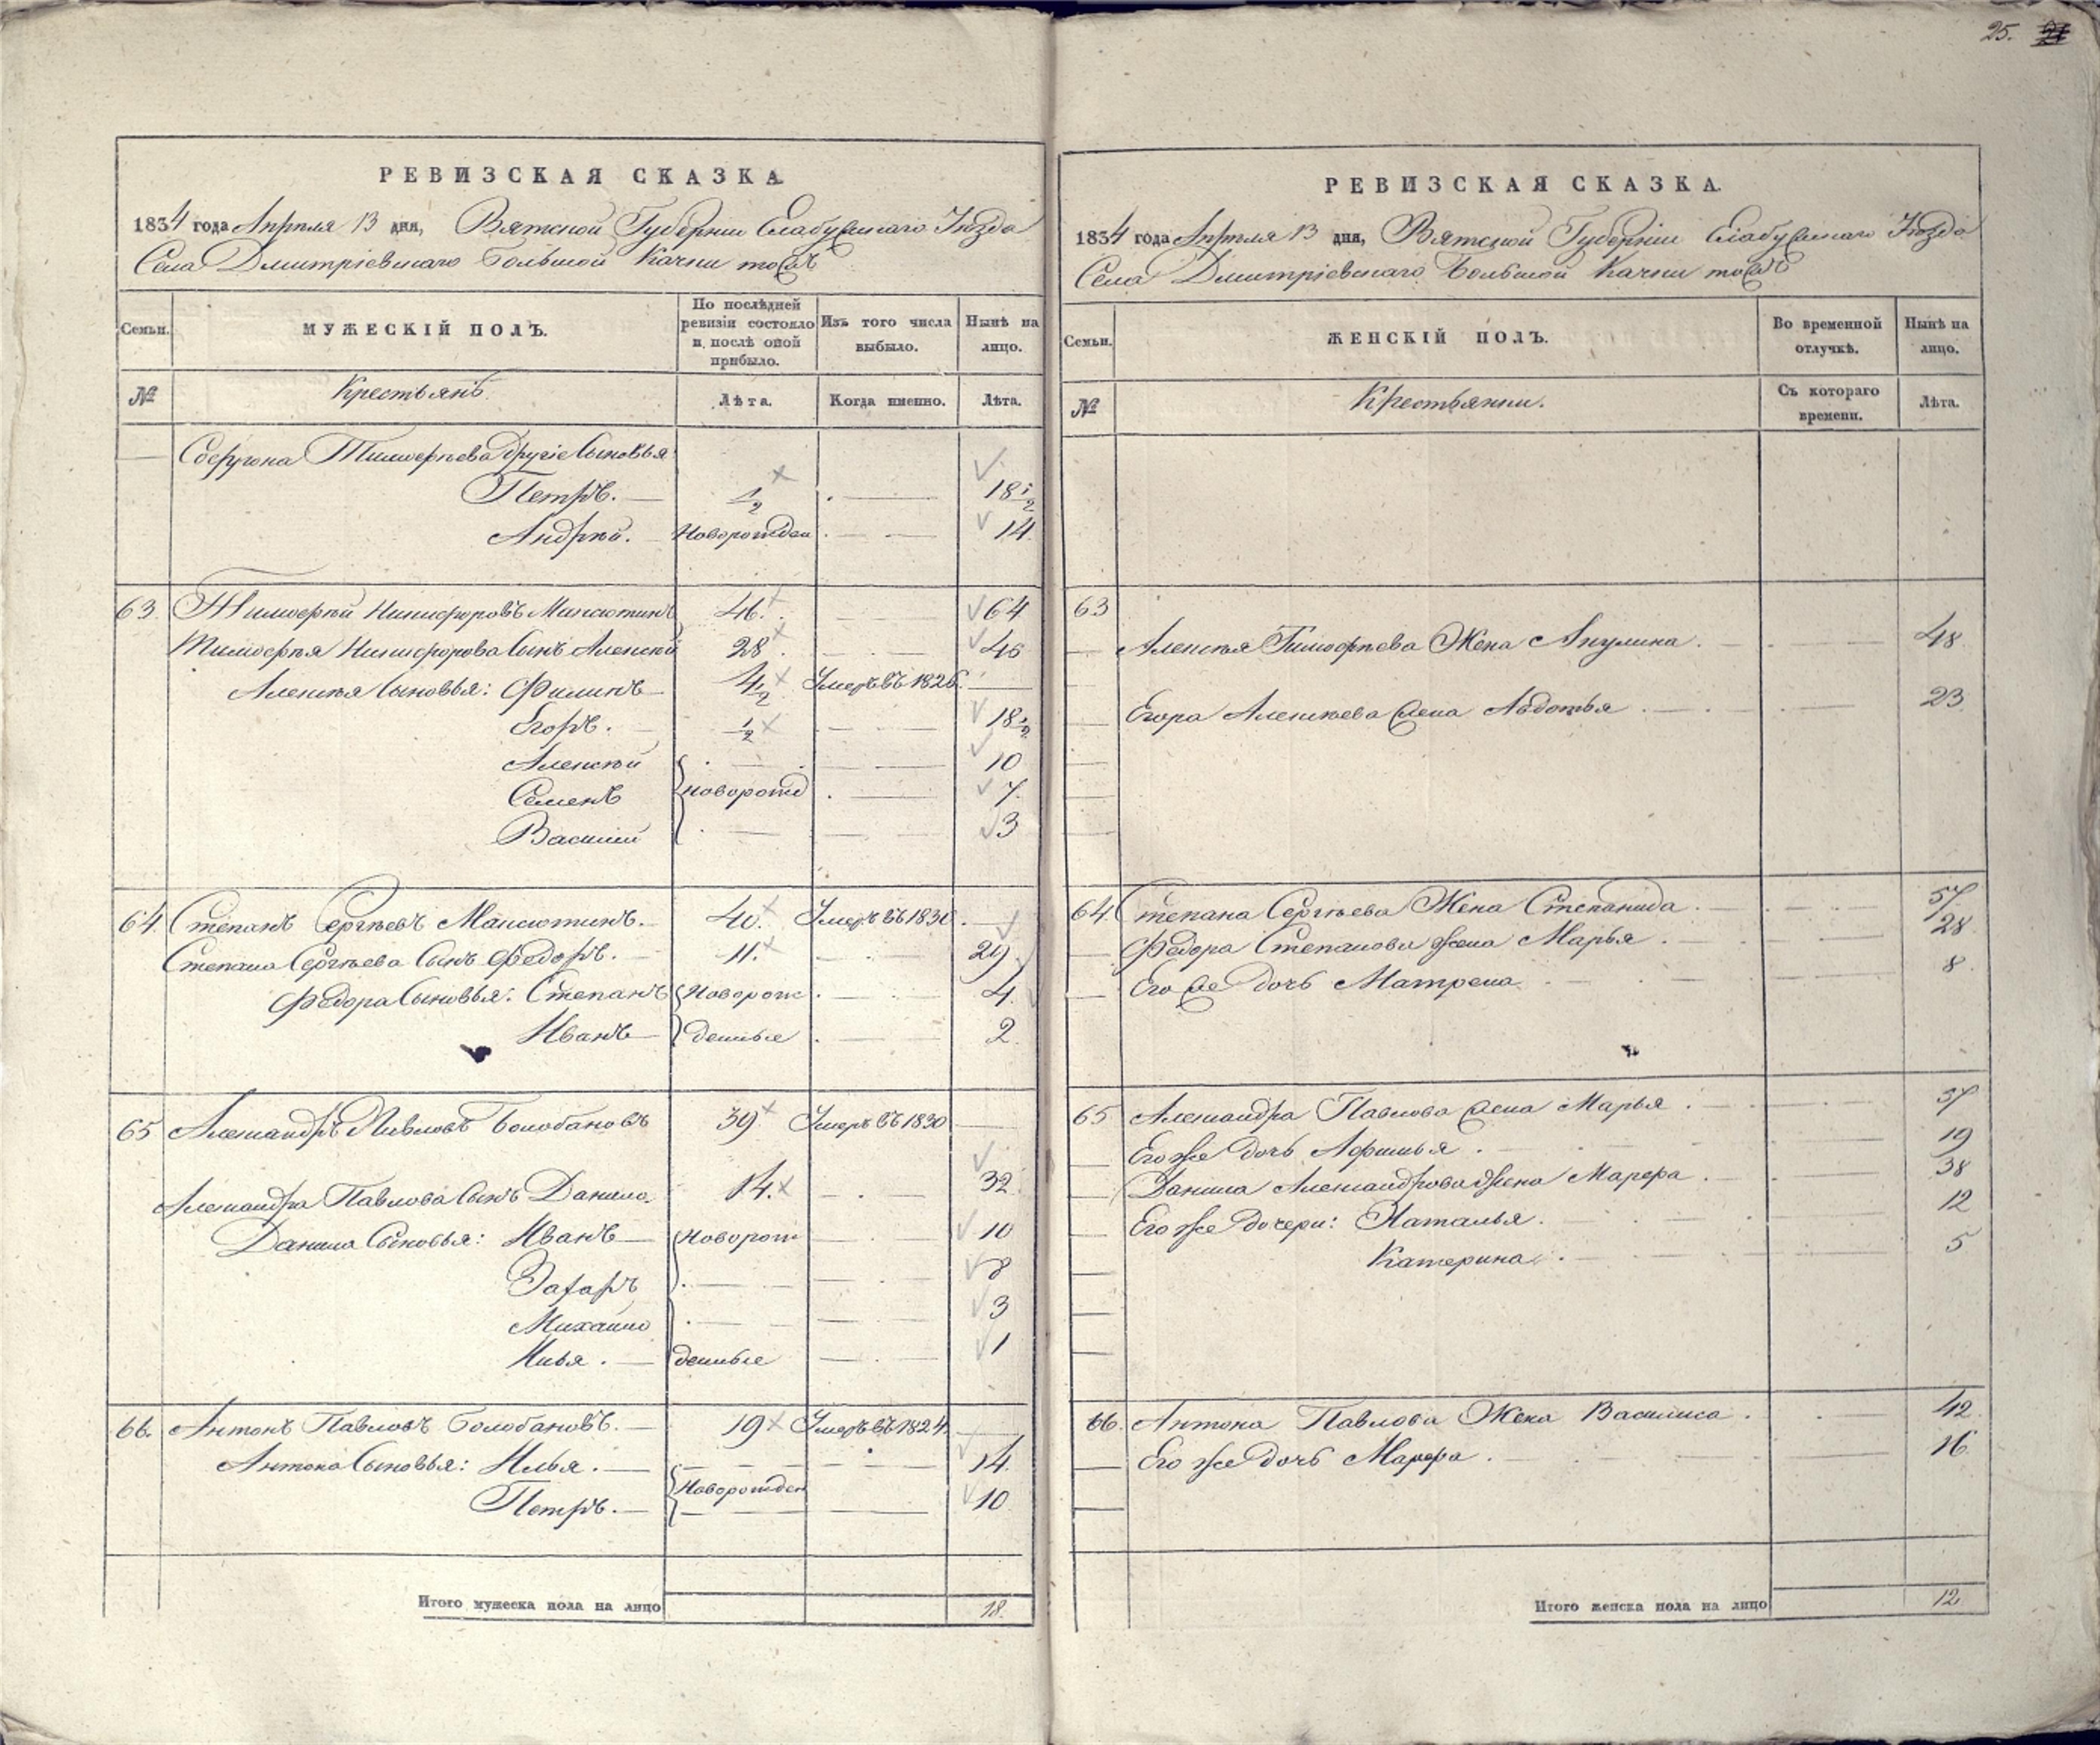 25. 21
РЕВИЗСКАЯ СКАЗКА.
1834 года Апреля 13 дня, Вятской Губернии Елабужскаго Уѣзда
Села Дмитріевскаго Большой Качки тожъ
Семьи.
МУЖЕСКІЙ ПОЛЪ.
По послѣдней ревизіи состояло и послѣ оной прибыло.
Изъ того числа выбыло.
Нынѣ на лицо.
№
Крестьянъ.
Лѣта.
Когда именно.
Лѣта.
Тимофеева другіе Сыновья
Петръ. 1/2 18 1/2
Андрей. Новорожден 14.
63. Тимофей Никифоровъ Максютинъ 46. 64
Тимофея Никифорова Сынъ Алексей 28. 46
Алексея Сыновья: Филипъ 4 1/2 Умеръ въ 1826.
Егоръ. 1/2 18 1/2
Алексей 10
Семенъ новорожд 7.
Василий 3
64. Степанъ Сергѣевъ Максютинъ. 40. Умеръ въ 1830.
Степана Сергѣева Сынъ Федоръ. 11. 29.
Федора Сыновья: Степанъ Новорож 4.
Иванъ денные 2.
65 Александръ Павловъ Болобановъ 39 Умеръ въ 1830
Александра Павлова Сынъ Данило. 14. 32.
Данила Сыновья: Иванъ Новорож 10
Захаръ 8
Михаило 3
Илья. денные 1
66. Антонъ Павловъ Болобановъ. 19 Умеръ въ 1824.
Антона Сыновья: Илья. 14.
Новорожден
Петръ. 10.
Итого мужеска пола на лицо 18.
РЕВИЗСКАЯ СКАЗКА.
1834 года Апреля 13 дня, Вятской Губерніи Елабужскаго Уѣзда
Села Дмитріевскаго Большой Качки тожъ
Семьи.
ЖЕНСКІЙ ПОЛЪ.
Во временной отлучкѣ.
Нынѣ на лицо.
№
Крестьянки.
Съ котораго времени.
Лѣта.
63
Алексея Тимофеева Жена Акулина. 48.
Егора Алексеева жена Авдотья. 23
64. Степана Сергѣева Жена Степанида. 57.
Федора Степанова жена Марья. 28.
Его же дочь Матрена. 8.
65 Александра Павлова жена Марья. 57
Его же дочь Афимья. 19
Данила Александрова жена Марфа. 38
Его же дочери: Наталья. 12
Катерина. 5
66. Антона Павлова Жена Василиса. 42.
Его же дочь Марфа. 16.
Итого женска пола на лицо 12